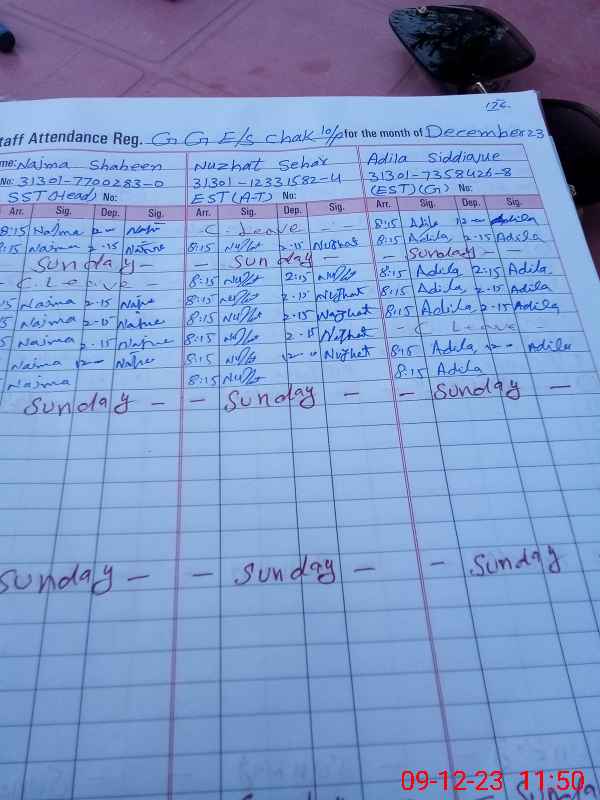 126
taff Attendance Reg. G G E/s chak 10/p for the month of December 23
me: Najma Shaheen Nuzhat Sehar Adila Siddique
No: 31301-7700283-0 31301-12331582-4 31301-7358426-8
SST (Head) No: EST (A-T) No: (EST) (G) No:
Arr. Sig. Dep. Sig. Arr. Sig. Dep. Sig. Arr. Sig. Dep. Sig.
8:15 Najma - C. Leave - 8:15 Adila 12 - Adila
8:15 Najma 2-15 8:15 2-15 Nuzhat 8:15 Adila 2-15 Adila
Sunday - Sunday - - Sunday -
- C. Leave - 8:15 2:15 8:15 Adila 2:15 Adila
15 Najma 2-15 8:15 2-15 Nuzhat 8:15 Adila 2-15 Adila
5 Najma 2-15 8:15 2-15 Nuzhat 8:15 Adila 2-15 Adila
5 Najma 2-15 8:15 2-15 Nuzhat - C Leave -
Najma 12 - 8:15 12 - Nuzhat 8:15 Adila 12 - Adila
Najma 8:15 8:15 Adila
Sunday - - Sunday - - Sunday -
Sunday - - Sunday - - Sunday
Sunda
09-12-23 11:50